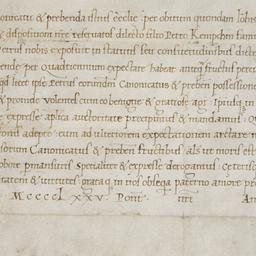 nonicatus & prebenda istius ecclie per obitum quondam Iohis
& dispositioni nre reservatos dilecto filio Petro Kempchin fami
Petrus nobis exposuit in statutis seu consuetudinibus dicte
ende per Quadriennium expectare habeat antequam fructus perci
qd licet ipse Petrus eorundem Canonicatus & preben possessione
& proinde volentes cum eo benigne & gratiose agi: Ipsiusq
& expresse aplica auctoritate precipimus & mandamus
orti adepto: cum ad ulteriorem expectationem arctare n
suorum Canonicatus & preben fructibus: als ut moris est
robore permansuris specialiter & expresse derogamus: ceterisq
itatem & virtutes: grataq in nos obsequia paterno amore pro
Mccccl xxv. Pont. nri: An